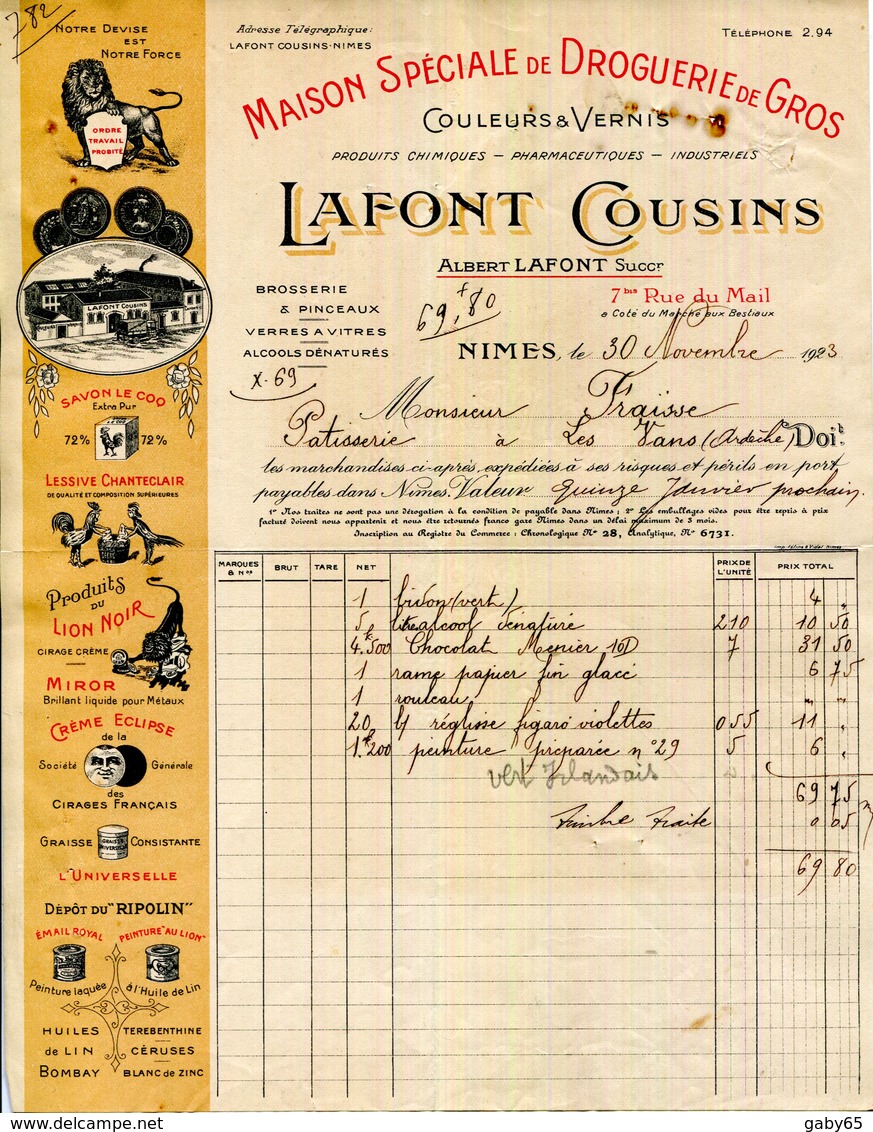 782
NOTRE DEVISE
EST
NOTRE FORCE
ORDRE
TRAVAIL
PROBITÉ
LAFONT COUSINS
SAVON LE COQ
Extra Pur
72% 72%
LESSIVE CHANTECLAIR
DE QUALITÉ ET COMPOSITION SUPÉRIEURES
Produits
DU
LION NOIR
CIRAGE CRÈME
MIROR
Brillant liquide pour Métaux
CRÈME ECLIPSE
de la
Société Générale
des
CIRAGES FRANÇAIS
GRAISSE CONSISTANTE
GRAISSE
UNIVERSELLE
L'UNIVERSELLE
DÉPÔT DU "RIPOLIN"
ÉMAIL ROYAL PEINTURE "AU LION"
Peinture laquée à l'Huile de Lin
HUILES TEREBENTHINE
de LIN CÉRUSES
BOMBAY BLANC de ZINC
Adresse Télégraphique:
LAFONT COUSINS-NIMES
TÉLÉPHONE 2.94
MAISON SPÉCIALE DE DROGUERIE DE GROS
COULEURS & VERNIS
PRODUITS CHIMIQUES — PHARMACEUTIQUES — INDUSTRIELS
LAFONT COUSINS
ALBERT LAFONT SUCCr
BROSSERIE
& PINCEAUX
VERRES A VITRES
ALCOOLS DÉNATURÉS
69,80
X-69
7bis Rue du Mail
a Coté du Marché aux Bestiaux
NIMES, le 30 Novembre 1923
Monsieur Fraisse
Patisserie à Les Vans (Ardèche) Doit
les marchandises ci-après, expédiées à ses risques et périls en port
payables dans Nimes. Valeur quinze Janvier prochain.
1° Nos traites ne sont pas une dérogation à la condition de payable dans Nimes ; 2° Les emballages vides pour être repris à prix
facturé doivent nous appartenir et nous être retournés franco gare Nimes dans un délai maximum de 3 mois.
Inscription au Registre du Commerce : Chronologique N° 28, Analytique, N° 6731.
MARQUES & Nos BRUT TARE NET PRIX DE L'UNITÉ PRIX TOTAL
1 bidon (vert) 4 "
5 litre alcool dénaturé 210 10 50
4k500 Chocolat Menier 7 31 50
1 rame papier fin glacé 6 75
1 rouleau " "
20 réglisse figaro violettes 055 11 "
1k200 peinture préparée n°29 5 6 "
vert Irlandais
69 75
Timbre traite 0 05
69 80
gaby65